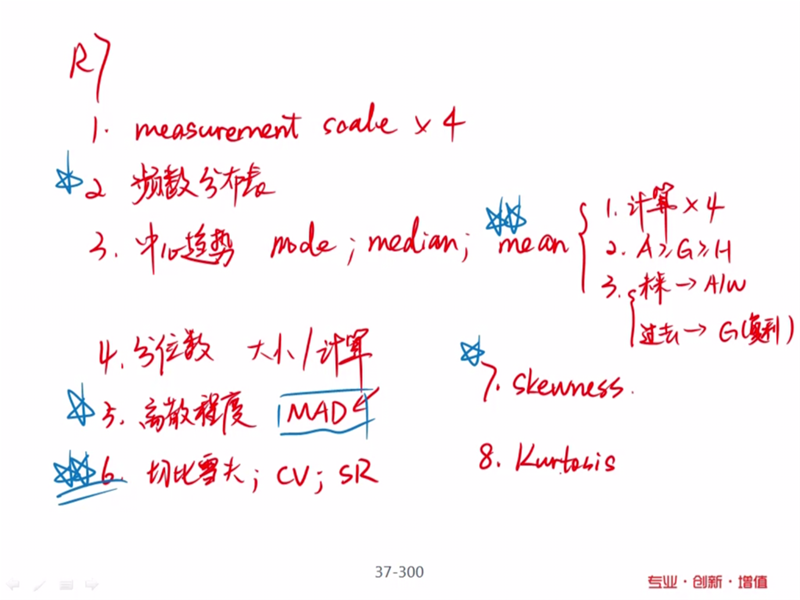 R7
1. measurement scale × 4
2 频数分布表
3. 中心趋势 mode ; median; mean
1. 计算 × 4
2. A ≥ G ≥ H
3. 未来 → A/W
过去 → G(复利)
4. 分位数 大小/计算
5. 离散程度 MAD
6. 切比雪夫; CV; SR
7. Skewness.
8. Kurtosis
37-300
专业·创新·增值